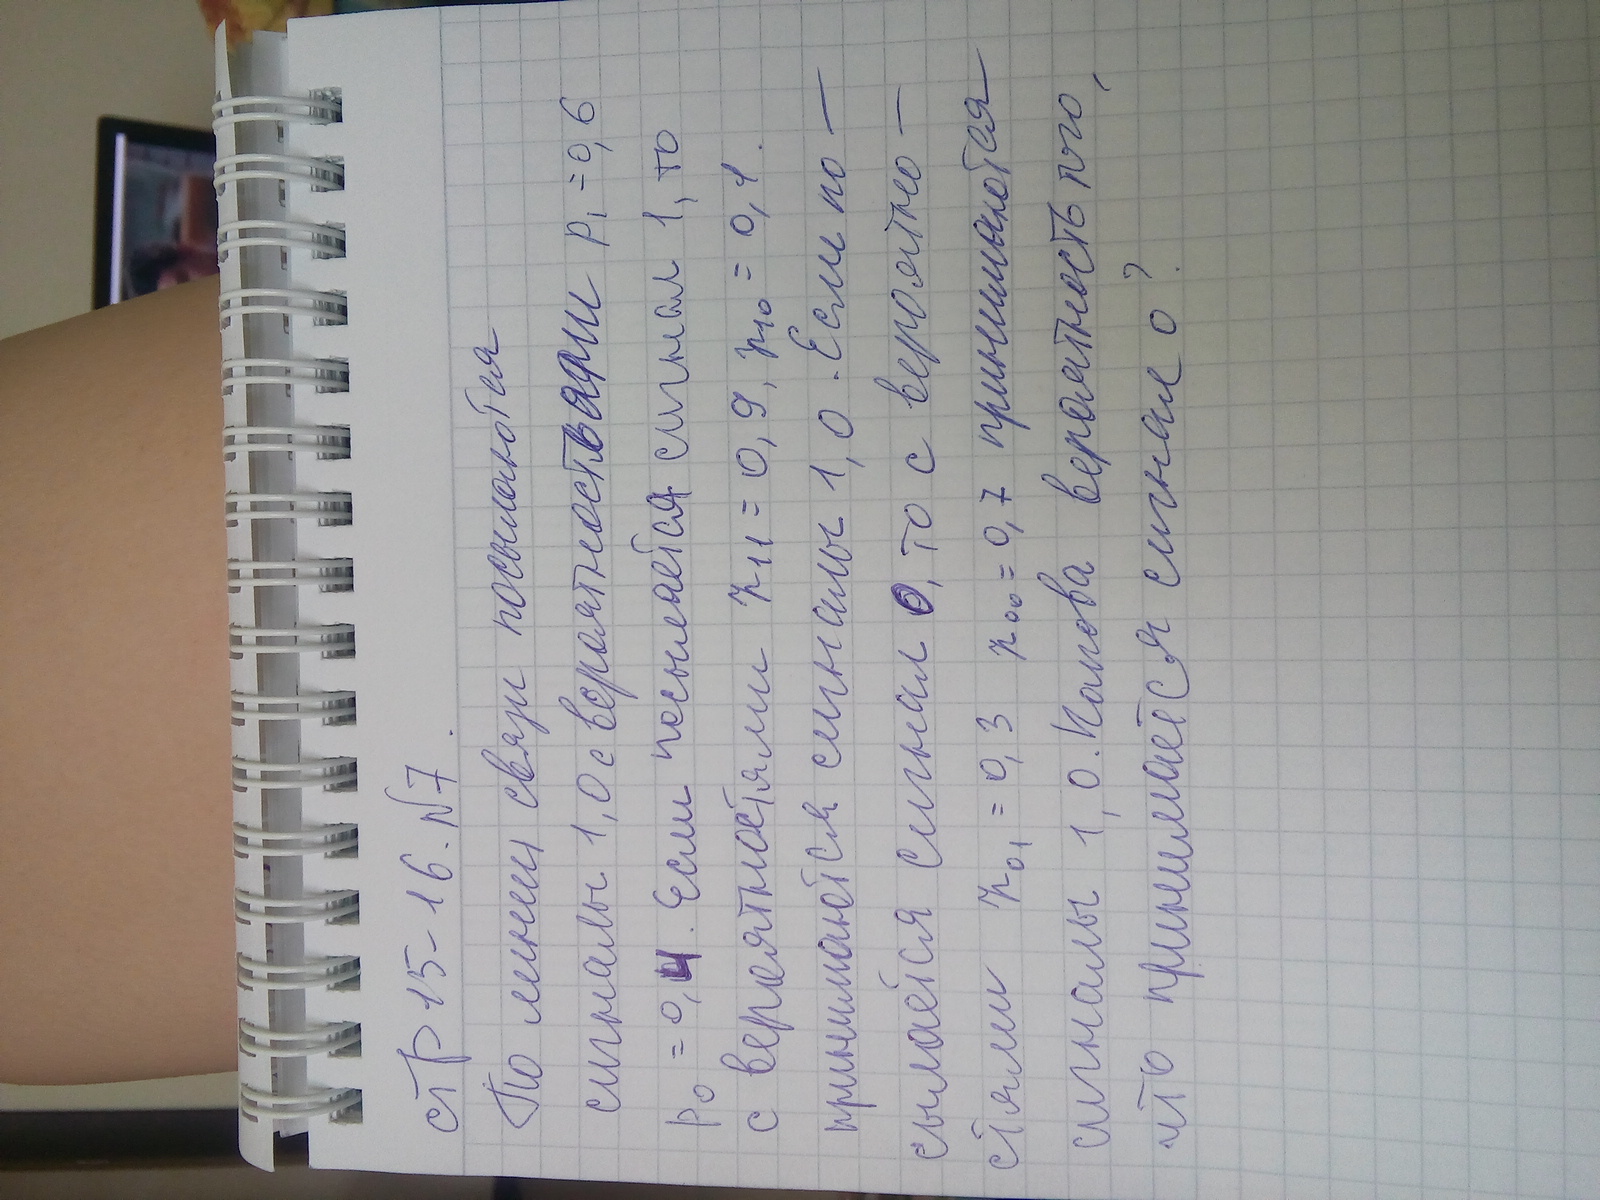 стр 15-16. №7.
По линии связи посылаются
сигналы 1,0 с вероятностьями p₁ = 0,6
p₀ = 0,4. Если посылается сигнал 1, то
с вероятностями r₁₁ = 0,9, r₁₀ = 0,1.
принимаются сигналы 1,0. Если по-
сылается сигнал 0, то с вероятно-
стями r₀₁ = 0,3 r₀₀ = 0,7 принимаются
сигналы 1,0. Какова вероятность того,
что принимается сигнал 0?